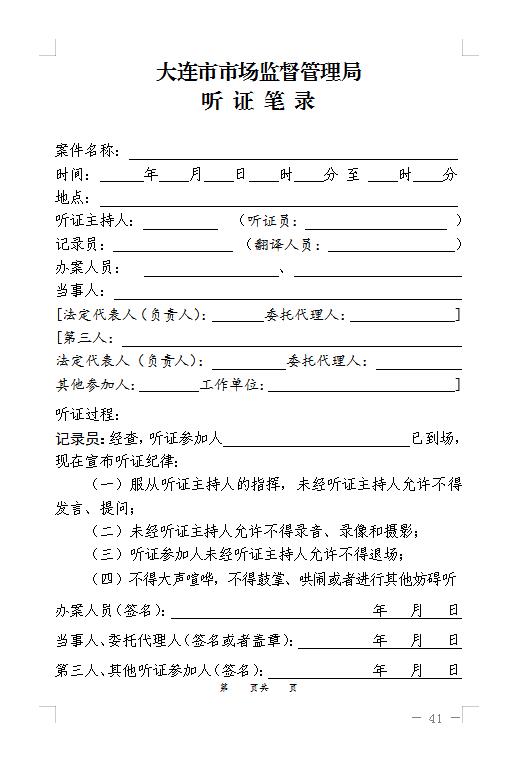 大连市市场监督管理局
听 证 笔 录
案件名称：
时间：____年____月____日____时____分 至 ____时____分
地点：
听证主持人：________ （听证员：________）
记录员：________ （翻译人员：________）
办案人员： ________、________
当事人：
[法定代表人（负责人）：______委托代理人：________]
[第三人：
法定代表人（负责人）：________委托代理人：________
其他参加人：______工作单位：________]
听证过程：
记录员：经查，听证参加人________已到场，
现在宣布听证纪律：
（一）服从听证主持人的指挥，未经听证主持人允许不得
发言、提问；
（二）未经听证主持人允许不得录音、录像和摄影；
（三）听证参加人未经听证主持人允许不得退场；
（四）不得大声喧哗，不得鼓掌、哄闹或者进行其他妨碍听
办案人员（签名）：________ 年 月 日
当事人、委托代理人（签名或者盖章）：________ 年 月 日
第三人、其他听证参加人（签名）：________ 年 月 日
第 页共 页
— 41 —